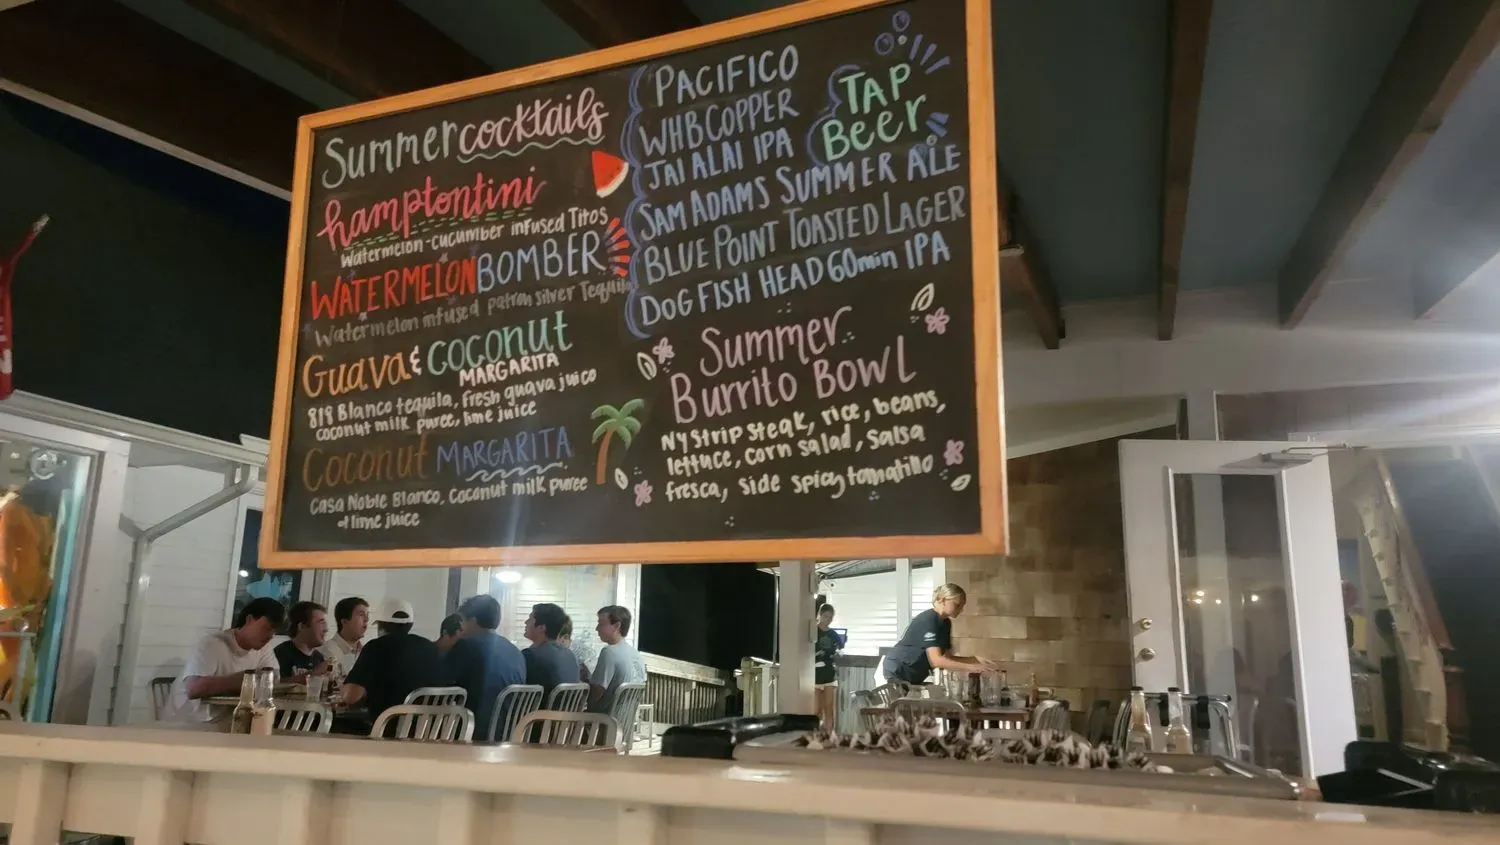 Summer cocktails
hamptontini
Watermelon-cucumber infused Titos
WATERMELON BOMBER
Watermelon infused patron silver Tequila
Guava & coconut
MARGARITA
818 Blanco tequila, fresh guava juice
coconut milk puree, lime juice
Coconut MARGARITA
Casa Noble Blanco, coconut milk puree
+ lime juice
TAP
Beer
PACIFICO
WHB COPPER
JAI ALAI IPA
SAM ADAMS SUMMER ALE
BLUE POINT TOASTED LAGER
DOG FISH HEAD 60min IPA
Summer
Burrito BOWL
NY strip steak, rice, beans,
lettuce, corn salad, salsa
fresca, side spicy tomatillo